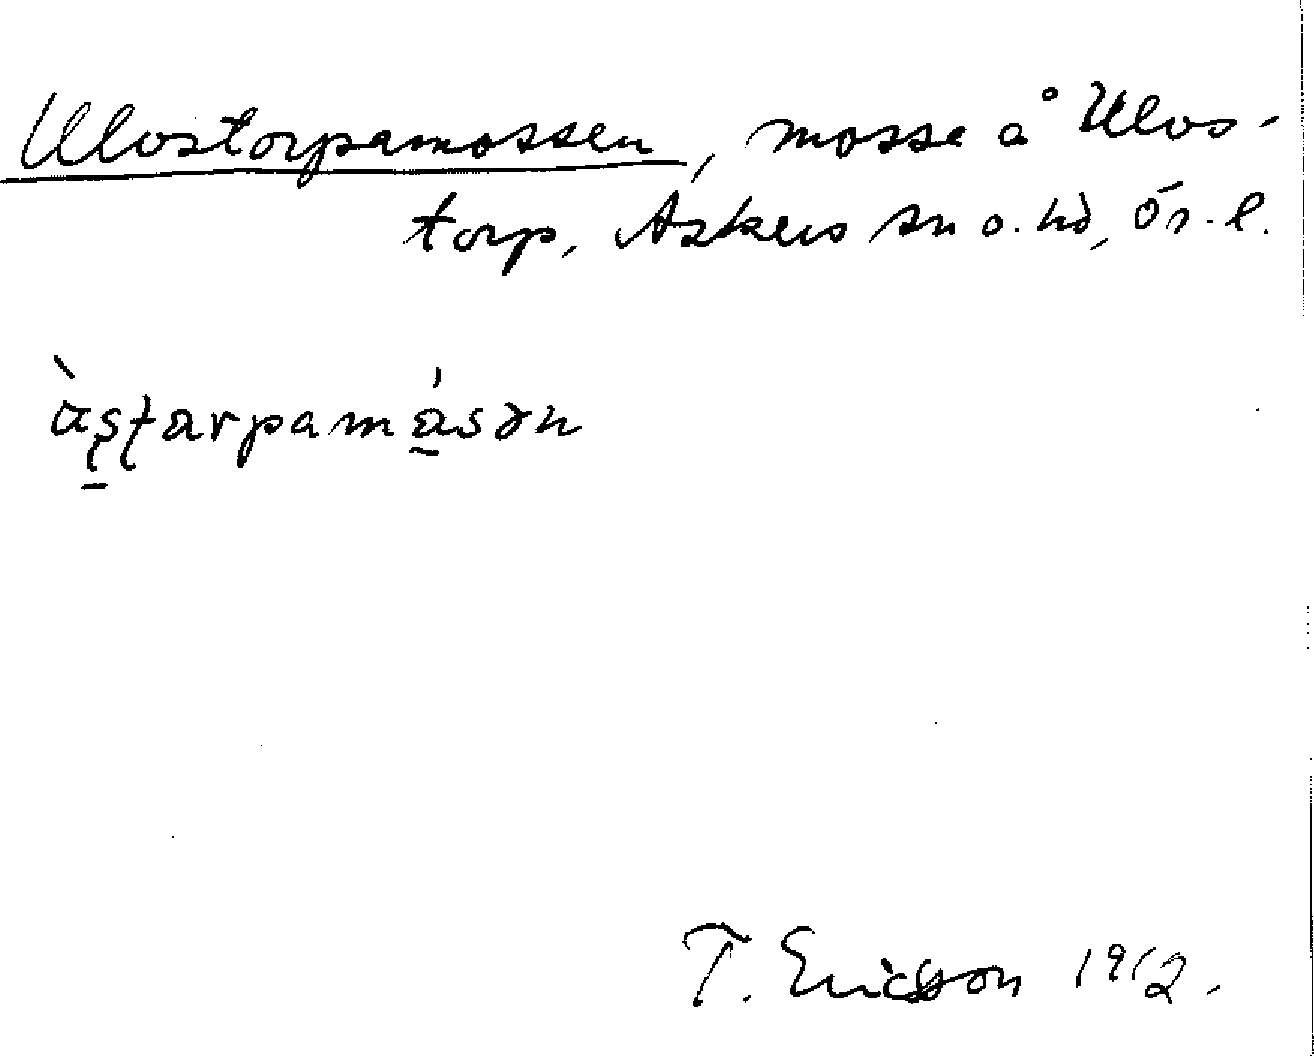 Ulvstorpamossen, mosse å Ulvs-
torp, Askers sn o. hd, Ör. l.
àʂʈarpamásən
T. Ericsson 1912.